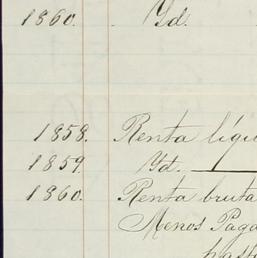 1860. Yd.
1858. Renta líqui
1859. Yd.
1860. Renta bruta
Menos Paga
hasta